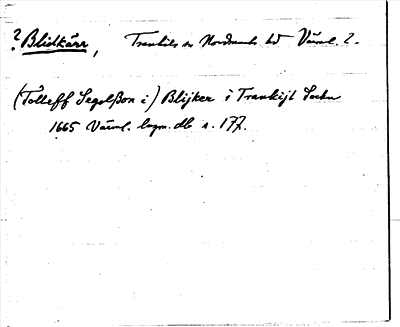 ? Blidkärr, Trankils sn Nordmarks hd Värml. l.
(Tolleff Segolßon i) Blijker i Trankijl Sochn
1665 Värml. lagm. db s. 177.